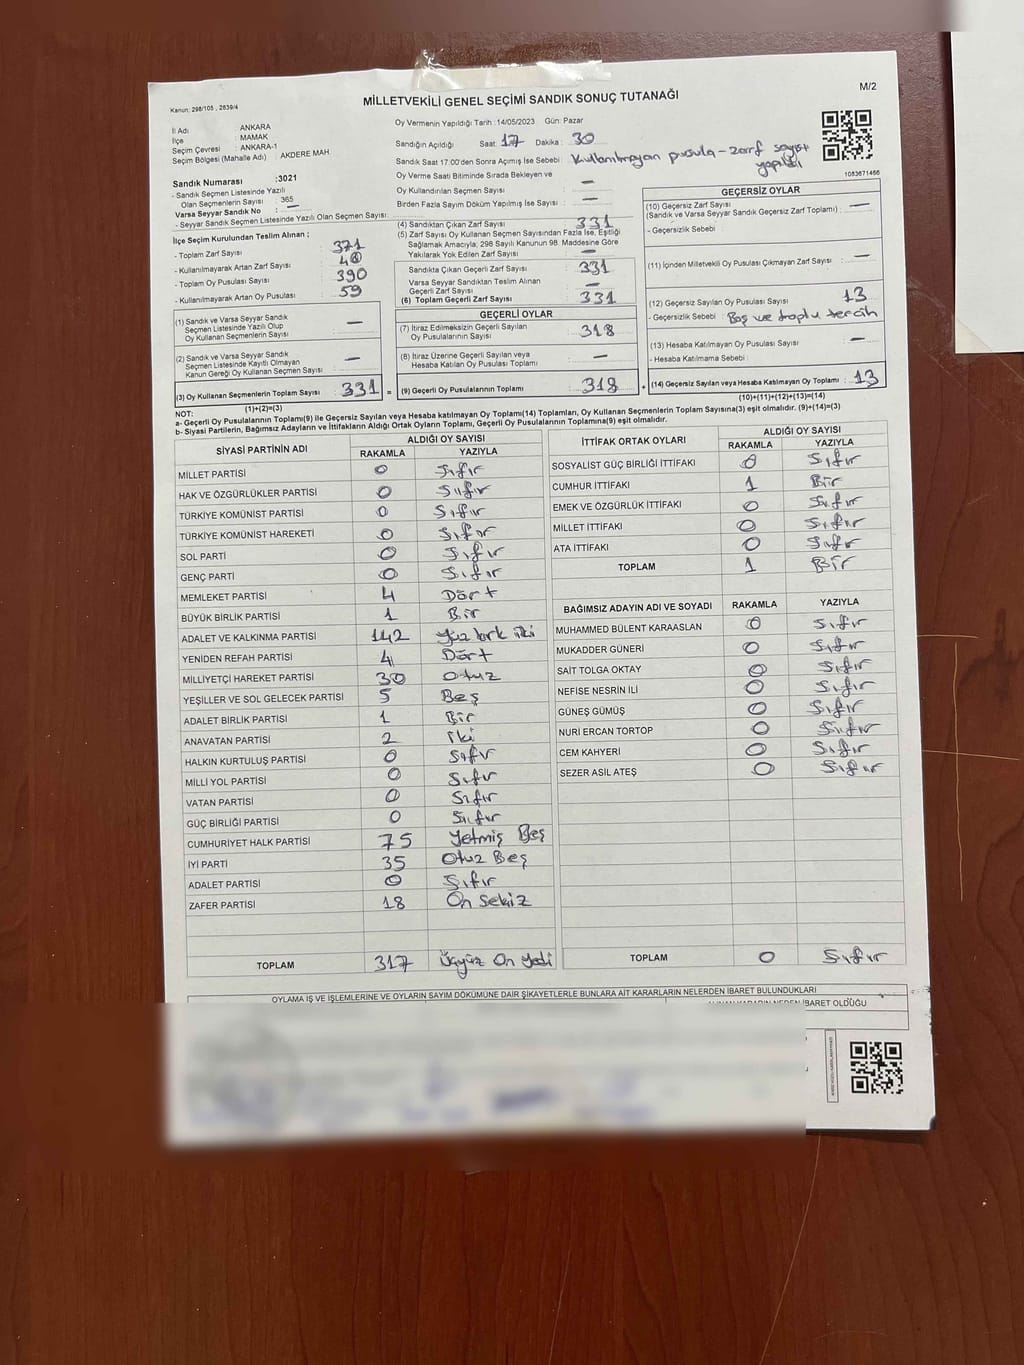 Kanun: 298/105 , 2839/4
MİLLETVEKİLİ GENEL SEÇİMİ SANDIK SONUÇ TUTANAĞI
M/2
İl Adı : ANKARA
İlçe : MAMAK
Seçim Çevresi : ANKARA-1
Seçim Bölgesi (Mahalle Adı) : AKDERE MAH.
Sandık Numarası :3021
- Sandık Seçmen Listesinde Yazılı
Olan Seçmenlerin Sayısı : 365
Varsa Seyyar Sandık No : —
- Seyyar Sandık Seçmen Listesinde Yazılı Olan Seçmen Sayısı:
Oy Vermenin Yapıldığı Tarih :14/05/2023 Gün: Pazar
Sandığın Açıldığı Saat: 17 Dakika : 30
Sandık Saat 17:00'den Sonra Açılmış İse Sebebi: Kullanılmayan pusula-zarf sayısı
yapıldı
Oy Verme Saati Bitiminde Sırada Bekleyen ve
Oy Kullandırılan Seçmen Sayısı : —
Birden Fazla Sayım Döküm Yapılmış İse Sayısı : —
1083671466
İlçe Seçim Kurulundan Teslim Alınan ;
- Toplam Zarf Sayısı : 371
- Kullanılmayarak Artan Zarf Sayısı : 40
- Toplam Oy Pusulası Sayısı : 390
- Kullanılmayarak Artan Oy Pusulası : 59
(1) Sandık ve Varsa Seyyar Sandık
Seçmen Listesinde Yazılı Olup
Oy Kullanan Seçmenlerin Sayısı : —
(2) Sandık ve Varsa Seyyar Sandık
Seçmen Listesinde Kayıtlı Olmayan
Kanun Gereği Oy Kullanan Seçmen Sayısı : —
(3) Oy Kullanan Seçmenlerin Toplam Sayısı : 331 =
(1)+(2)=(3)
(4) Sandıktan Çıkan Zarf Sayısı : 331
(5) Zarf Sayısı Oy Kullanan Seçmen Sayısından Fazla İse, Eşitliği
Sağlamak Amacıyla, 298 Sayılı Kanunun 98. Maddesine Göre
Yakılarak Yok Edilen Zarf Sayısı : —
Sandıkta Çıkan Geçerli Zarf Sayısı : 331
Varsa Seyyar Sandıktan Teslim Alınan
Geçerli Zarf Sayısı : —
(6) Toplam Geçerli Zarf Sayısı : 331
GEÇERLİ OYLAR
(7) İtiraz Edilmeksizin Geçerli Sayılan
Oy Pusulalarının Sayısı : 318
(8) İtiraz Üzerine Geçerli Sayılan veya
Hesaba Katılan Oy Pusulası Toplamı : —
(9) Geçerli Oy Pusulalarının Toplamı : 318 +
GEÇERSİZ OYLAR
(10) Geçersiz Zarf Sayısı
(Sandık ve Varsa Seyyar Sandık Geçersiz Zarf Toplamı) : —
- Geçersizlik Sebebi :
(11) İçinden Milletvekili Oy Pusulası Çıkmayan Zarf Sayısı : —
(12) Geçersiz Sayılan Oy Pusulası Sayısı : 13
- Geçersizlik Sebebi : Boş ve toplu tercih
(13) Hesaba Katılmayan Oy Pusulası Sayısı : —
- Hesaba Katılmama Sebebi :
(14) Geçersiz Sayılan veya Hesaba Katılmayan Oy Toplamı : 13
(10)+(11)+(12)+(13)=(14)
NOT:
a- Geçerli Oy Pusulalarının Toplamı(9) ile Geçersiz Sayılan veya Hesaba katılmayan Oy Toplamı(14) Toplamları, Oy Kullanan Seçmenlerin Toplam Sayısına(3) eşit olmalıdır. (9)+(14)=(3)
b- Siyasi Partilerin, Bağımsız Adayların ve İttifakların Aldığı Ortak Oyların Toplamı, Geçerli Oy Pusulalarının Toplamına(9) eşit olmalıdır.
SİYASİ PARTİNİN ADI ALDIĞI OY SAYISI
RAKAMLA YAZIYLA
MİLLET PARTİSİ 0 Sıfır
HAK VE ÖZGÜRLÜKLER PARTİSİ 0 Sıfır
TÜRKİYE KOMÜNİST PARTİSİ 0 Sıfır
TÜRKİYE KOMÜNİST HAREKETİ 0 Sıfır
SOL PARTİ 0 Sıfır
GENÇ PARTİ 0 Sıfır
MEMLEKET PARTİSİ 4 Dört
BÜYÜK BİRLİK PARTİSİ 1 Bir
ADALET VE KALKINMA PARTİSİ 142 Yüz kırk iki
YENİDEN REFAH PARTİSİ 4 Dört
MİLLİYETÇİ HAREKET PARTİSİ 30 Otuz
YEŞİLLER VE SOL GELECEK PARTİSİ 5 Beş
ADALET BİRLİK PARTİSİ 1 Bir
ANAVATAN PARTİSİ 2 İki
HALKIN KURTULUŞ PARTİSİ 0 Sıfır
MİLLİ YOL PARTİSİ 0 Sıfır
VATAN PARTİSİ 0 Sıfır
GÜÇ BİRLİĞİ PARTİSİ 0 Sıfır
CUMHURİYET HALK PARTİSİ 75 Yetmiş Beş
İYİ PARTİ 35 Otuz Beş
ADALET PARTİSİ 0 Sıfır
ZAFER PARTİSİ 18 On Sekiz
TOPLAM 317 Üçyüz On Yedi
İTTİFAK ORTAK OYLARI ALDIĞI OY SAYISI
RAKAMLA YAZIYLA
SOSYALİST GÜÇ BİRLİĞİ İTTİFAKI 0 Sıfır
CUMHUR İTTİFAKI 1 Bir
EMEK VE ÖZGÜRLÜK İTTİFAKI 0 Sıfır
MİLLET İTTİFAKI 0 Sıfır
ATA İTTİFAKI 0 Sıfır
TOPLAM 1 Bir
BAĞIMSIZ ADAYIN ADI VE SOYADI RAKAMLA YAZIYLA
MUHAMMED BÜLENT KARAASLAN 0 Sıfır
MUKADDER GÜNERİ 0 Sıfır
SAİT TOLGA OKTAY 0 Sıfır
NEFİSE NESRİN İLİ 0 Sıfır
GÜNEŞ GÜMÜŞ 0 Sıfır
NURİ ERCAN TORTOP 0 Sıfır
CEM KAHYERİ 0 Sıfır
SEZER ASİL ATEŞ 0 Sıfır
TOPLAM 0 Sıfır
OYLAMA İŞ VE İŞLEMLERİNE VE OYLARIN SAYIM DÖKÜMÜNE DAİR ŞİKAYETLERLE BUNLARA AİT KARARLARIN NELERDEN İBARET BULUNDUKLARI
ALINAN KARARIN NEDEN İBARET OLDUĞU